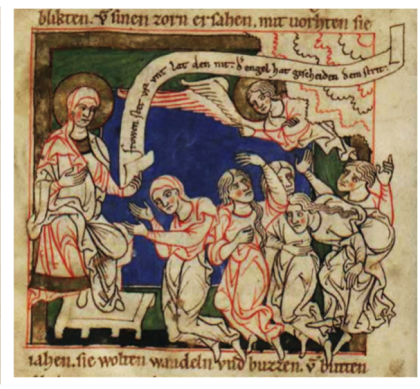 blikten. v̄ sinen zorn ersahen, mit vorhten sie
frowen stet vf vnt lat den nit. d᾽ engel hat gescheiden den strit.
iahen. sie wolten wandeln vnd buzzen. v̄ bitten